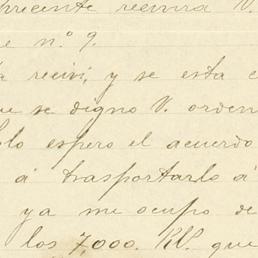 presente recivirá V.
e n.º 9.
recivi, y se esta
se digno V. orden
espero el acuerdo
á trasportarlo á
ya me ocupo de
los 7,000. Kl. que